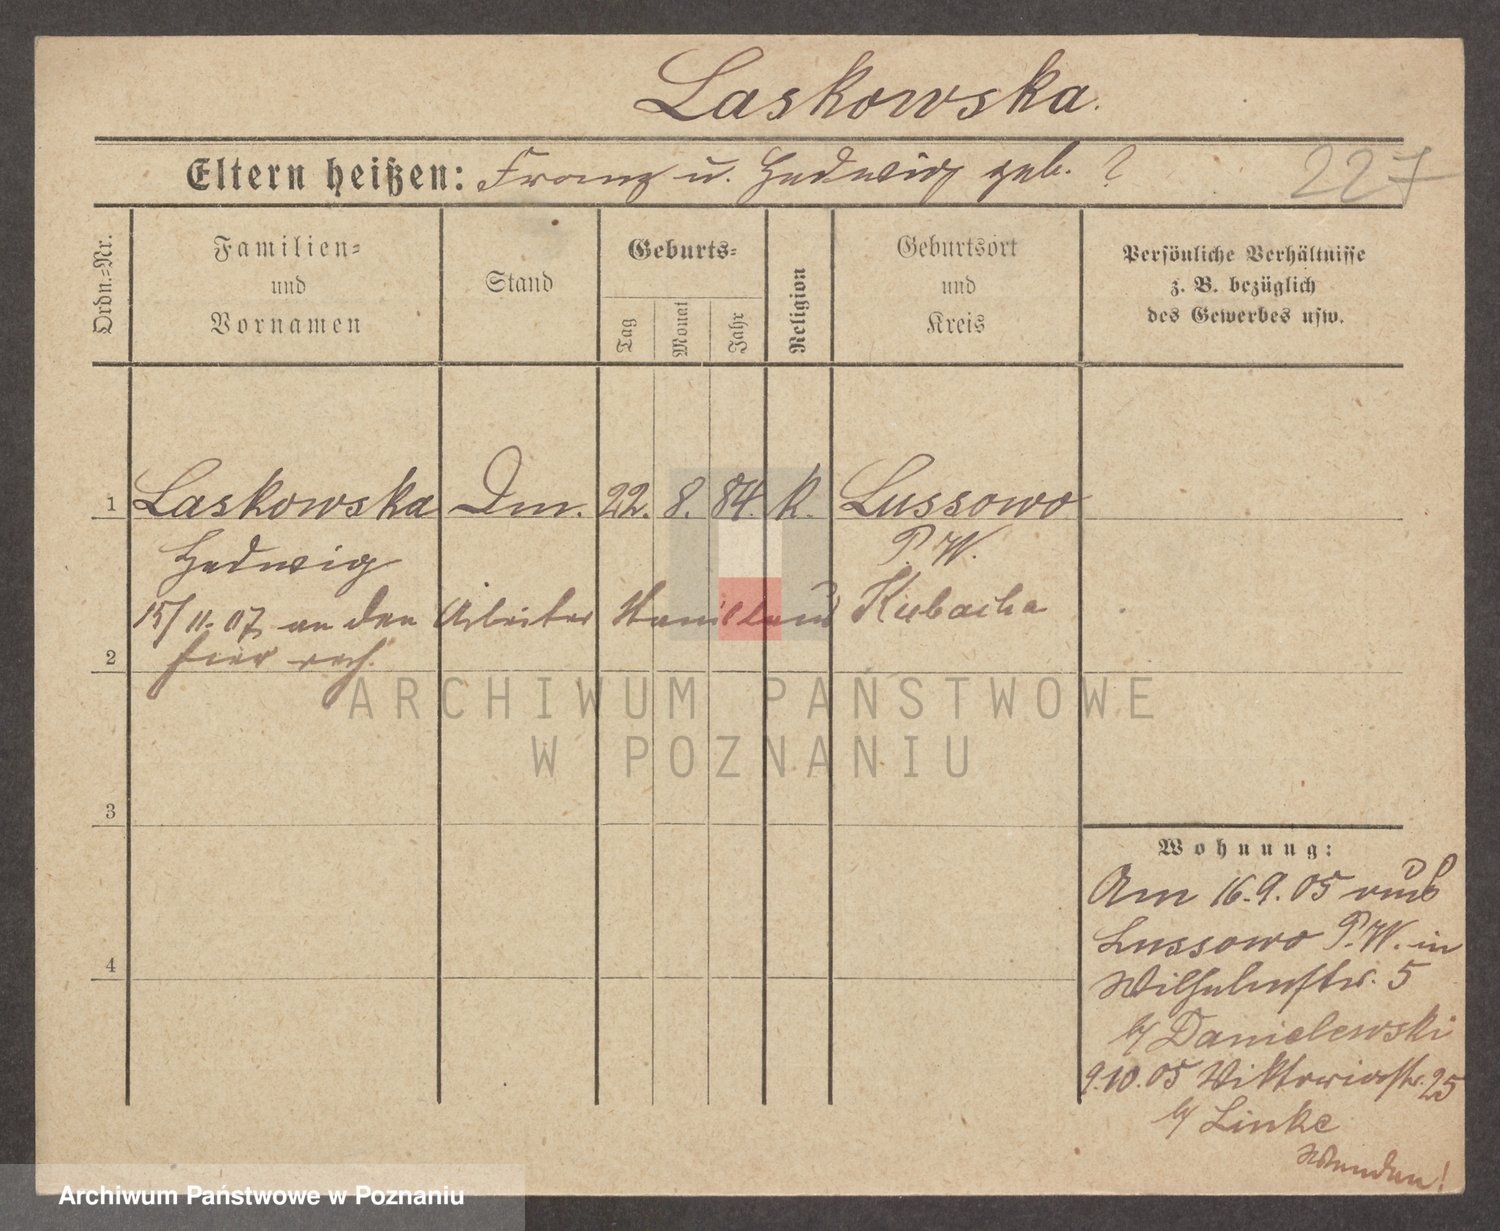 Laskowska.
Eltern heißen: Franz u. Hedwig geb. ?
227
Ordn.=Nr.
Familien=
und
Vornamen
Stand
Geburts=
Tag
Monat
Jahr
Religion
Geburtsort
und
Kreis
Persönliche Verhältnisse
z. B. bezüglich
des Gewerbes usw.
1 Laskowska Dm. 22. 8. 84. k. Lussowo
Hedwig P. W.
15/11.07 an den Arbeiter Stanislaus Kubacha
2 hier
3
4
Wohnung:
Am 16.9.05 aus
Lussowo P. W. in
Wilhelmstr. 5
b/ Danielewski
9.10.05 Viktoriastr. 25
b/ Linke
Wenden!
ARCHIWUM PAŃSTWOWE
W POZNANIU
Archiwum Państwowe w Poznaniu